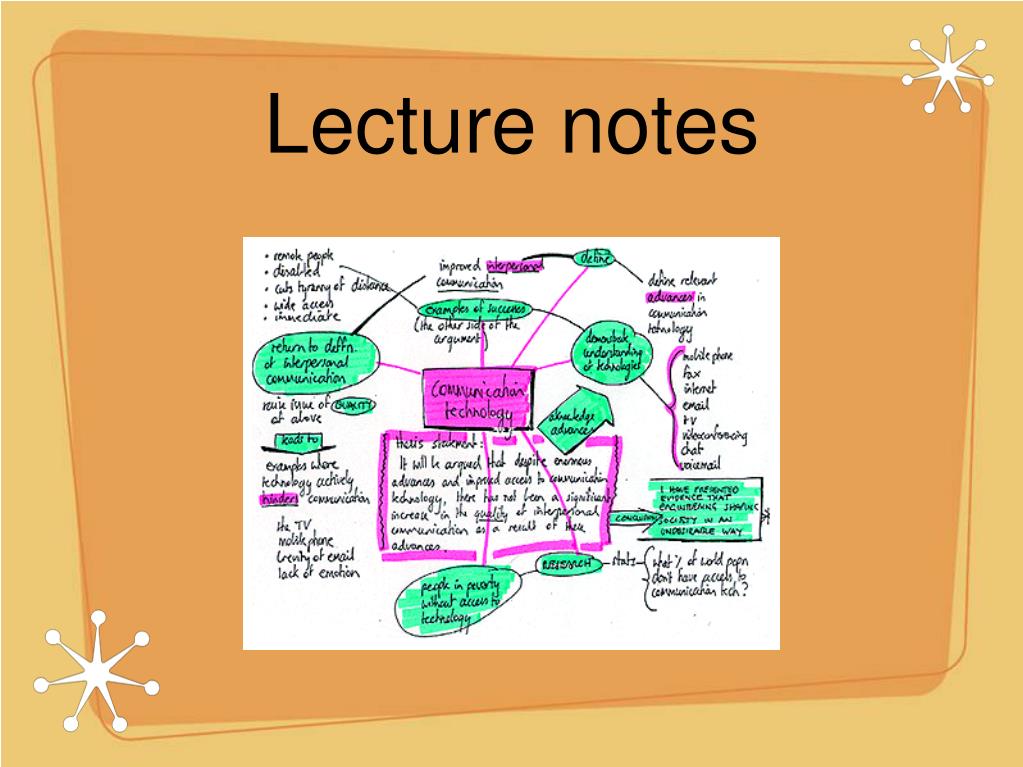 Lecture notes
• remote people
• disabled
• cuts tyranny of distance
• wide access
• immediate
improved interpersonal
communication
define
define relevant
advances in
communication
technology
examples of successes
(the other side of the
argument)
demonstrate
understanding
of technologies
mobile phone
fax
internet
email
TV
videoconferencing
chat
voicemail
return to deffn.
of interpersonal
communication
raise issue of QUALITY
at above
leads to
examples where
technology actively
hinders communication
the TV
mobile phone
brevity of email
lack of emotion
Communication
technology
acknowledge
advances
thesis statement:
It will be argued that despite enormous
advances and improved access to communication
technology, there has not been a significant
increase in the quality of interpersonal
communication as a result of these
advances.
CONCLUSION
I HAVE PRESENTED
EVIDENCE THAT
ENGINEERING SHAPING
SOCIETY IN AN
UNDESIRABLE WAY
RESEARCH
stats
what % of world popn
don't have access to
communication tech?
people in poverty
without access to
technology